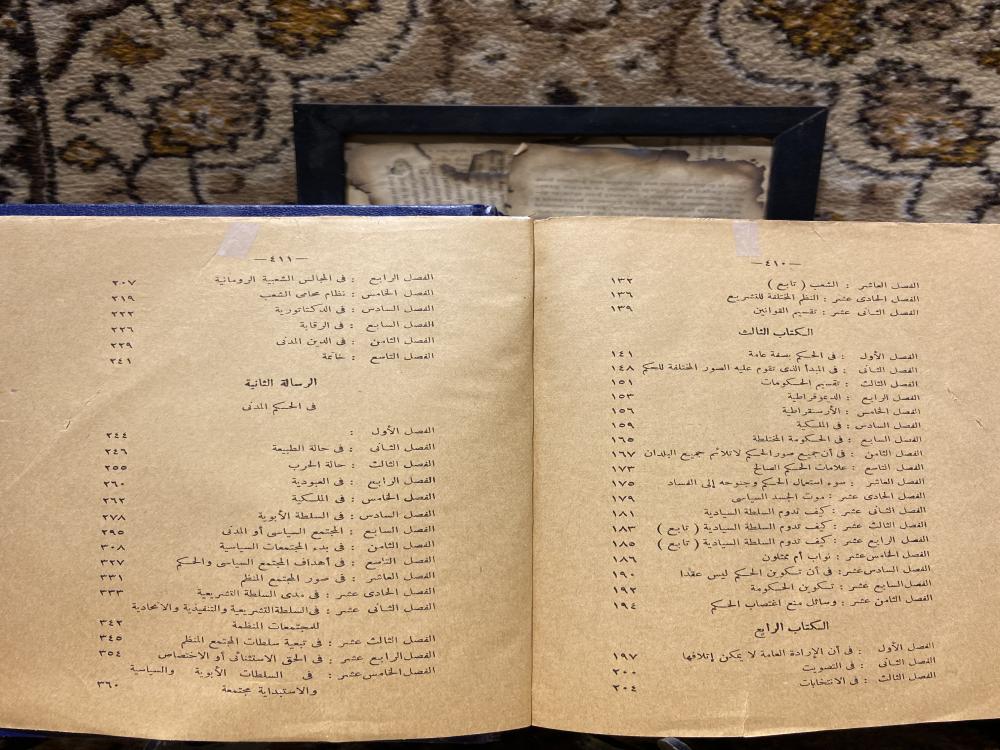 —٤١٠—
الفصل العاشر : الشعب ( تابع ) ١٣٢
الفصل الحادى عشر : النظم المختلفة للتشريع ١٣٦
الفصل الثانى عشر : تقسيم القوانين ١٣٩
الكتاب الثالث
الفصل الأول : فى الحكم بصفة عامة ١٤١
الفصل الثانى : فى المبدأ الذى تقوم عليه الصور المختلفة للحكم ١٤٨
الفصل الثالث : تقسيم الحكومات ١٥١
الفصل الرابع : الديموقراطية ١٥٣
الفصل الخامس : الأرستقراطية ١٥٦
الفصل السادس : فى الملكية ١٥٩
الفصل السابع : فى الحكومة المختلطة ١٦٥
الفصل الثامن : فى أن جميع صور الحكم لا تلائم جميع البلدان ١٦٧
الفصل التاسع : علامات الحكم الصالح ١٧٣
الفصل العاشر : سوء استعمال الحكم وجنوحه إلى الفساد ١٧٥
الفصل الحادى عشر : موت الجسد السياسى ١٧٩
الفصل الثانى عشر : كيف تدوم السلطة السيادية ١٨١
الفصل الثالث عشر : كيف تدوم السلطة السيادية ( تابع ) ١٨٣
الفصل الرابع عشر : كيف تدوم السلطة السيادية ( تابع ) ١٨٥
الفصل الخامس عشر : نواب أم ممثلون ١٨٦
الفصل السادس عشر : فى أن تكوين الحكم ليس عقدا ١٩٠
الفصل السابع عشر : تكوين الحكومة ١٩٢
الفصل الثامن عشر : وسائل منع اغتصاب الحكم ١٩٤
الكتاب الرابع
الفصل الأول : فى أن الإرادة العامة لا يمكن إتلافها ١٩٧
الفصل الثانى : فى التصويت ٢٠٠
الفصل الثالث : فى الانتخابات ٢٠٤
—٤١١—
الفصل الرابع : فى المجالس الشعبية الرومانية ٢٠٧
الفصل الخامس : نظام محامى الشعب ٢١٩
الفصل السادس : فى الدكتاتورية ٢٢٢
الفصل السابع : فى الرقابة ٢٢٦
الفصل الثامن : فى الدين المدنى ٢٢٩
الفصل التاسع : خاتمة ٢٤١
الرسالة الثانية
فى الحكم المدنى
الفصل الأول : ٢٤٤
الفصل الثانى : فى حالة الطبيعة ٢٤٦
الفصل الثالث : حالة الحرب ٢٥٥
الفصل الرابع : فى العبودية ٢٦٠
الفصل الخامس : فى الملكية ٢٦٢
الفصل السادس : فى السلطة الأبوية ٢٧٨
الفصل السابع : المجتمع السياسى أو المدنى ٢٩٥
الفصل الثامن : فى بدء المجتمعات السياسية ٣٠٨
الفصل التاسع : فى أهداف المجتمع السياسى والحكم ٣٢٧
الفصل العاشر : فى صور المجتمع المنظم ٣٣١
الفصل الحادى عشر : فى مدى السلطة التشريعية ٣٣٣
الفصل الثانى عشر : فى السلطة التشريعية والتنفيذية والاتحادية
للمجتمعات المنظمة ٣٤٢
الفصل الثالث عشر : فى تبعية سلطات المجتمع المنظم ٣٤٥
الفصل الرابع عشر : فى الحق الاستثنائى أو الاختصاص ٣٥٤
الفصل الخامس عشر : فى السلطات الأبوية والسياسية
والاستبداية مجتمعة ٣٦٠